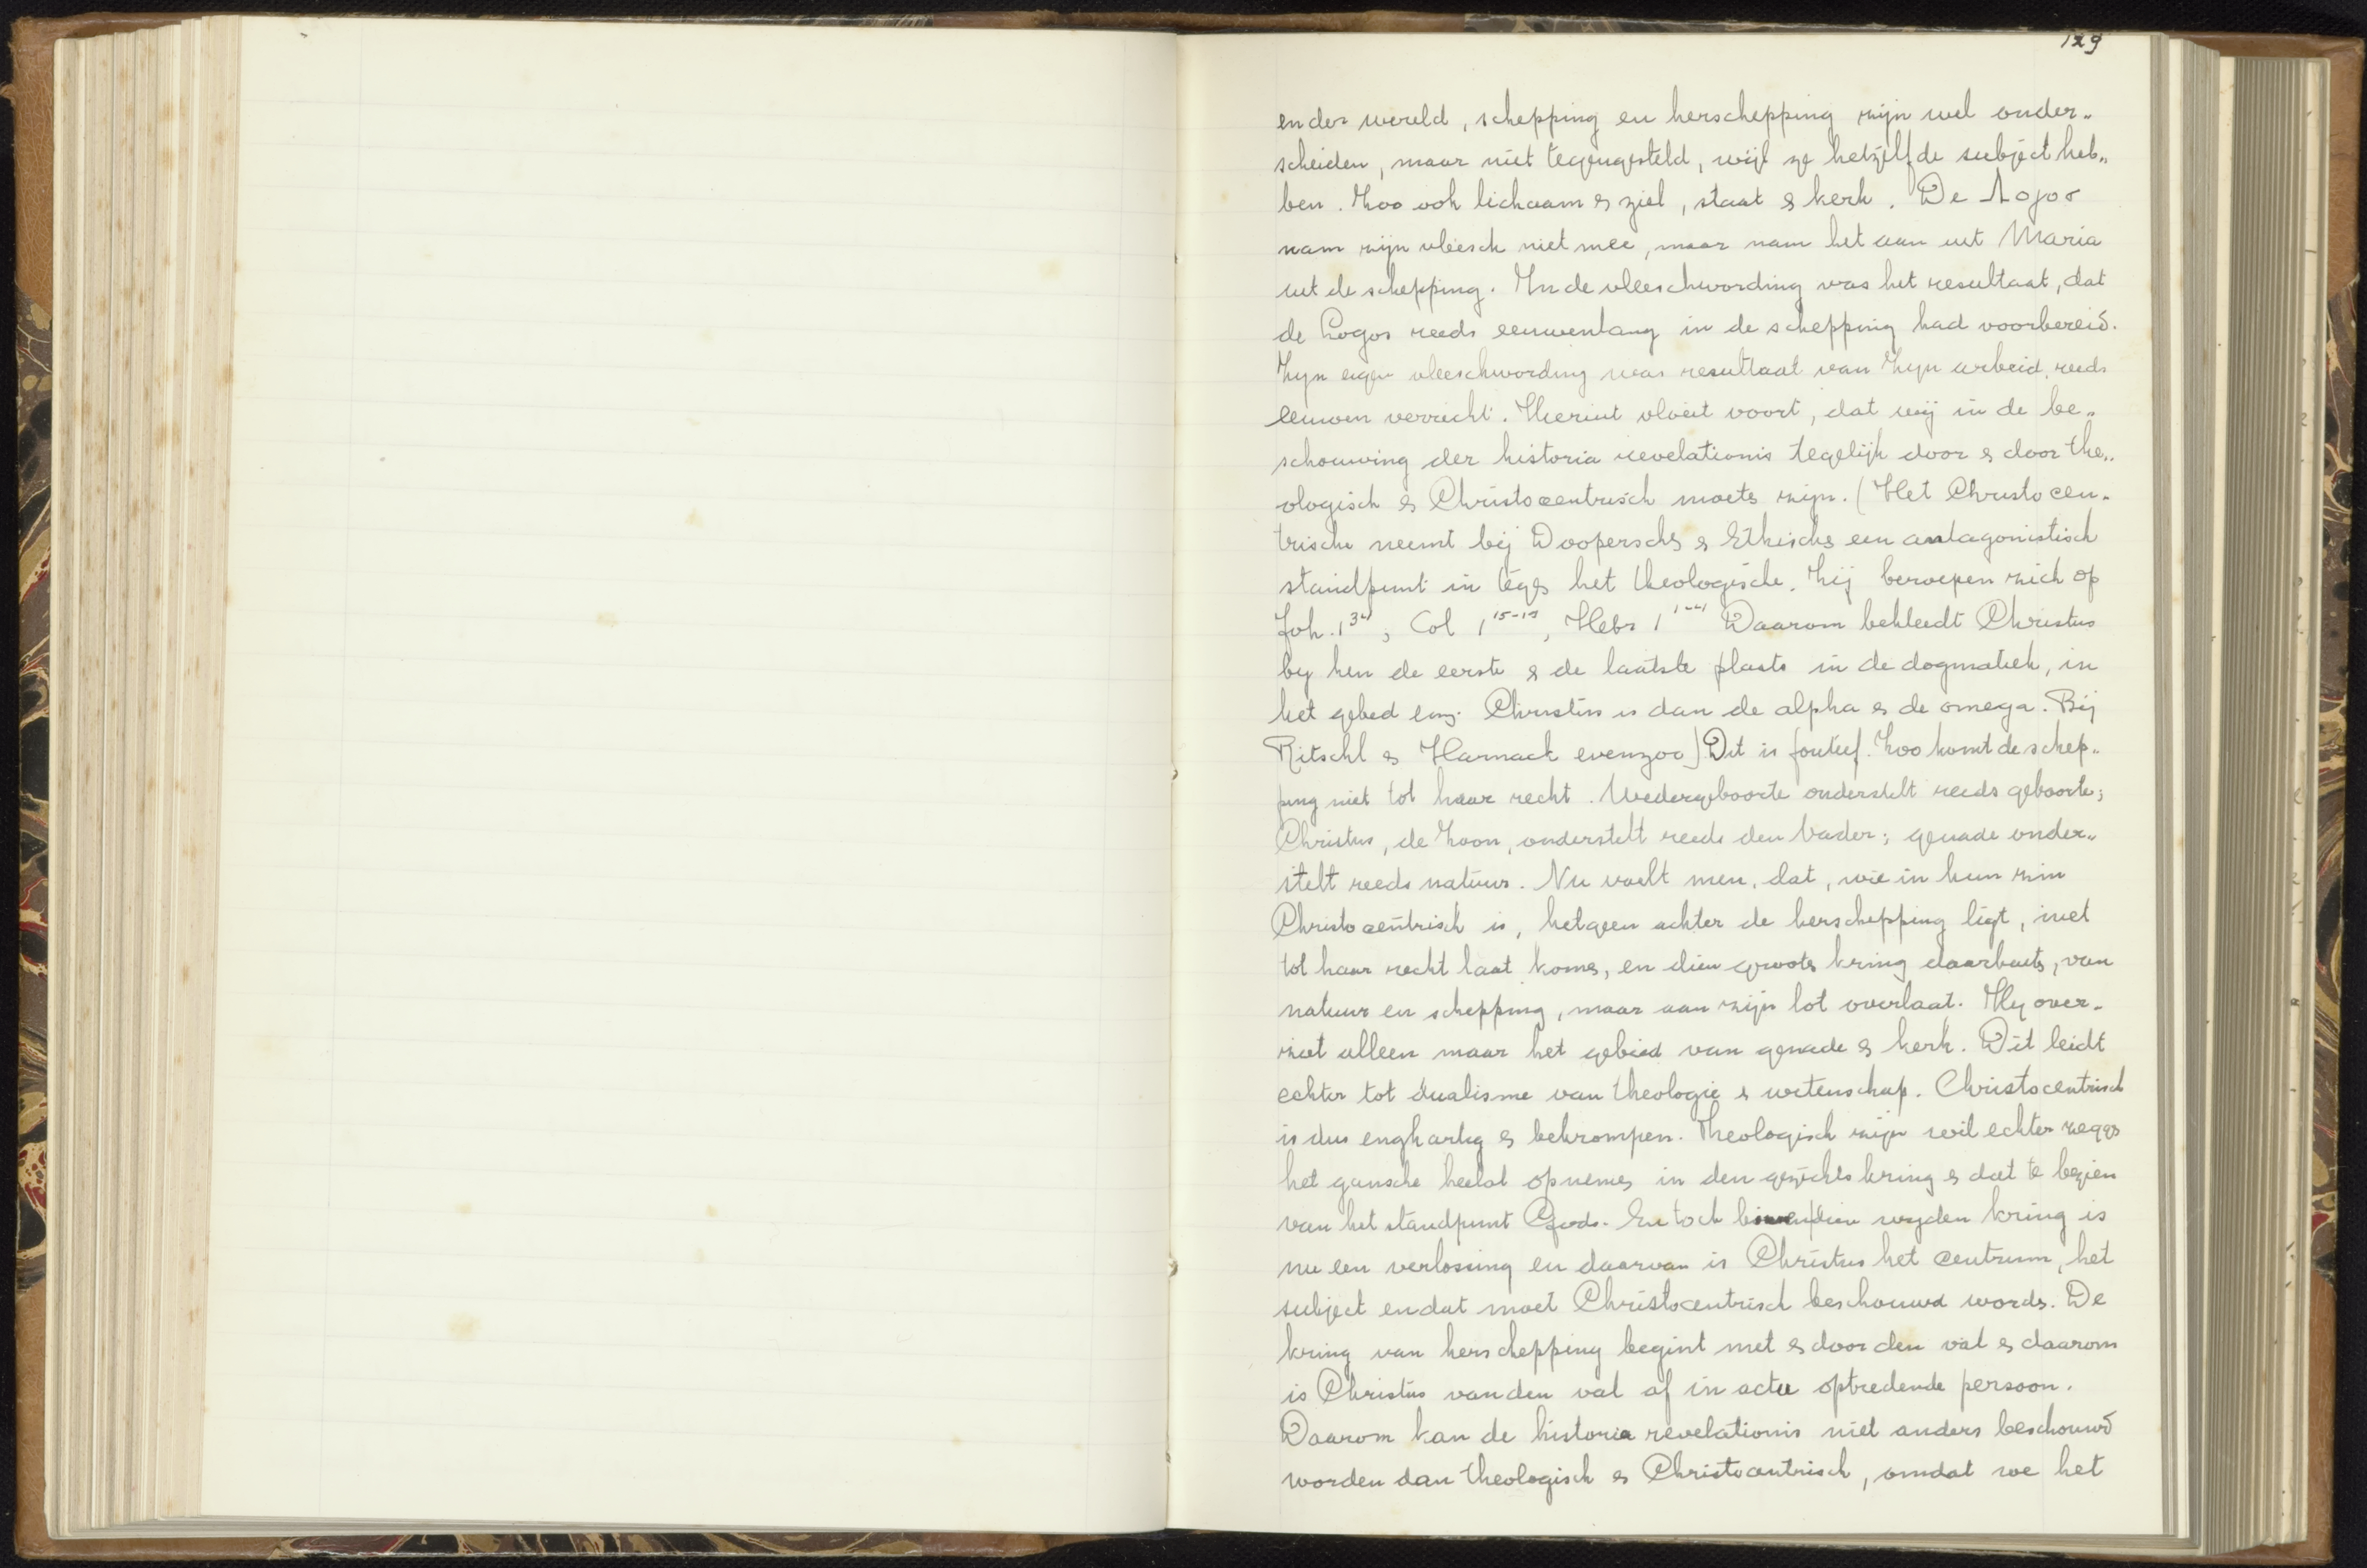 129
en der wereld, schepping en herschepping zijn wel onder„
scheiden, maar niet tegengesteld, wijl ze hetzelfde subject heb„
ben. Zoo ook lichaam & ziel, staat & kerk. De Λογοσ
nam zijn vleesch niet mee, maar nam het aan uit Maria
uit de schepping. In de vleeschwording was het resultaat, dat
de Logos reeds eeuwenlang in de schepping had voorbereid.
Zyn eigen vleeschwording was resultaat van Zyn arbeid, reeds
eeuwen verricht. Hieruit vloeit voort, dat wij in de be„
schouwing der historia revelationis tegelijk door & door the„
ologisch & Christocentrisch moets zijn. (Het Christocen„
trische neemt bij Doopersche & Ethische een antagonistisch
standpunt in tegs het theologische. Zij beroepen zich op
Joh. 1 , Col 1 , Hebr 1 Daarom bekleedt Christus
by hen de eerste & de laatste plaats in de dogmatiek, in
het gebed enz. Christus is dan de alpha & de omega. Bij
Ritschl & Harnack evenzoo) Dit is foutief. Zoo komt de schep„
ping niet tot haar recht. Wedergeboorte onderstelt reeds geboorte;
Christus, de Zoon, onderstelt reeds den Vader; genade onder„
stelt reeds natuur. Nu voelt men, dat, wie in hun zin
Christocentrisch is, hetgeen achter de herschepping ligt, niet
tot haar recht laat koms, en dien groots kring daarbuits, van
natuur en schepping, maar aan zijn lot overlaat. Hy over„
ziet alleen maar het gebied van genade & kerk. Dit leidt
echter tot dualisme van theologie & wetenschap. Christocentrisch
is dus enghartig & bekrompen. Theologisch zijn wil echter zeggs
het gansche heelal opnems in den gezichtskring & dat te bezien
van het standpunt Gods. En toch binnen dien wyden kring is
nu een verlossing en daarvan is Christus het centrum, het
subject en dat moet Christocentrisch beschouwd words. De
kring van herschepping begint met & door den val & daarom
is Christus van den val af in actu optredende persoon.
Daarom kan de historia revelationis niet anders beschouwd
worden dan theologisch & Christocentrisch, omdat we het